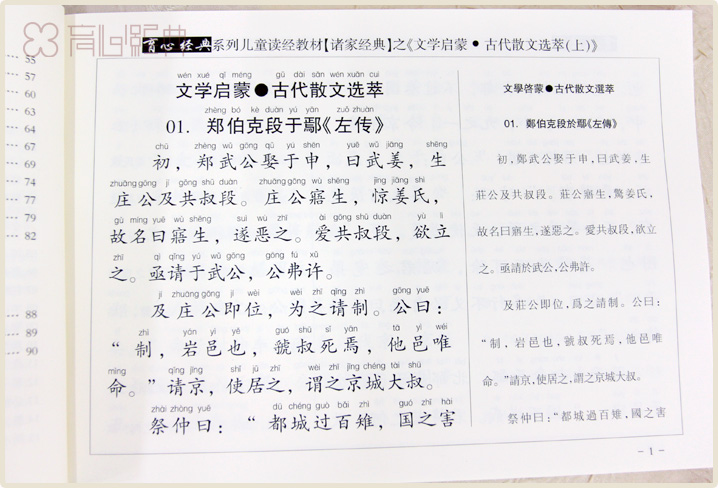 育心经典
育心经典系列儿童读经教材【诸家经典】之《文学启蒙•古代散文选萃(上)》
55
57
60
63
64
67
69
74
77
79
82
88
89
90
wén xué qǐ méng gǔ dài sǎn wén xuǎn cuì
文学启蒙●古代散文选萃
zhèng bó kè duàn yú yān zuǒ zhuàn
01. 郑伯克段于鄢《左传》
chū zhèng wǔ gōng qǔ yú shēn yuē wǔ jiāng shēng
初，郑武公娶于申，曰武姜，生
zhuāng gōng jí gōng shū duàn zhuāng gōng wù shēng jīng jiāng shì
庄公及共叔段。庄公寤生，惊姜氏，
gù míng yuē wù shēng suì wù zhī ài gōng shū duàn yù lì
故名曰寤生，遂恶之。爱共叔段，欲立
zhī qì qǐng yú wǔ gōng gōng fú xǔ
之。亟请于武公，公弗许。
jí zhuāng gōng jí wèi wèi zhī qǐng zhì gōng yuē
及庄公即位，为之请制。公曰：
zhì yán yì yě guó shū sǐ yān tā yì wéi
“制，岩邑也，虢叔死焉，他邑唯
mìng qǐng jīng shǐ jū zhī wèi zhī jīng chéng tài shū
命。”请京，使居之，谓之京城大叔。
zhài zhòng yuē dū chéng guò bǎi zhì guó zhī hài
祭仲曰：“都城过百雉，国之害
文學啓蒙●古代散文選萃
01. 鄭伯克段於鄢《左傳》
初，鄭武公娶于申，曰武姜，生
莊公及共叔段。莊公寤生，驚姜氏，
故名曰寤生，遂惡之。愛共叔段，欲立
之。亟請於武公，公弗許。
及莊公即位，爲之請制。公曰：
“制，岩邑也，虢叔死焉，他邑唯
命。”請京，使居之，謂之京城大叔。
祭仲曰：“都城過百雉，國之害
- 1 -